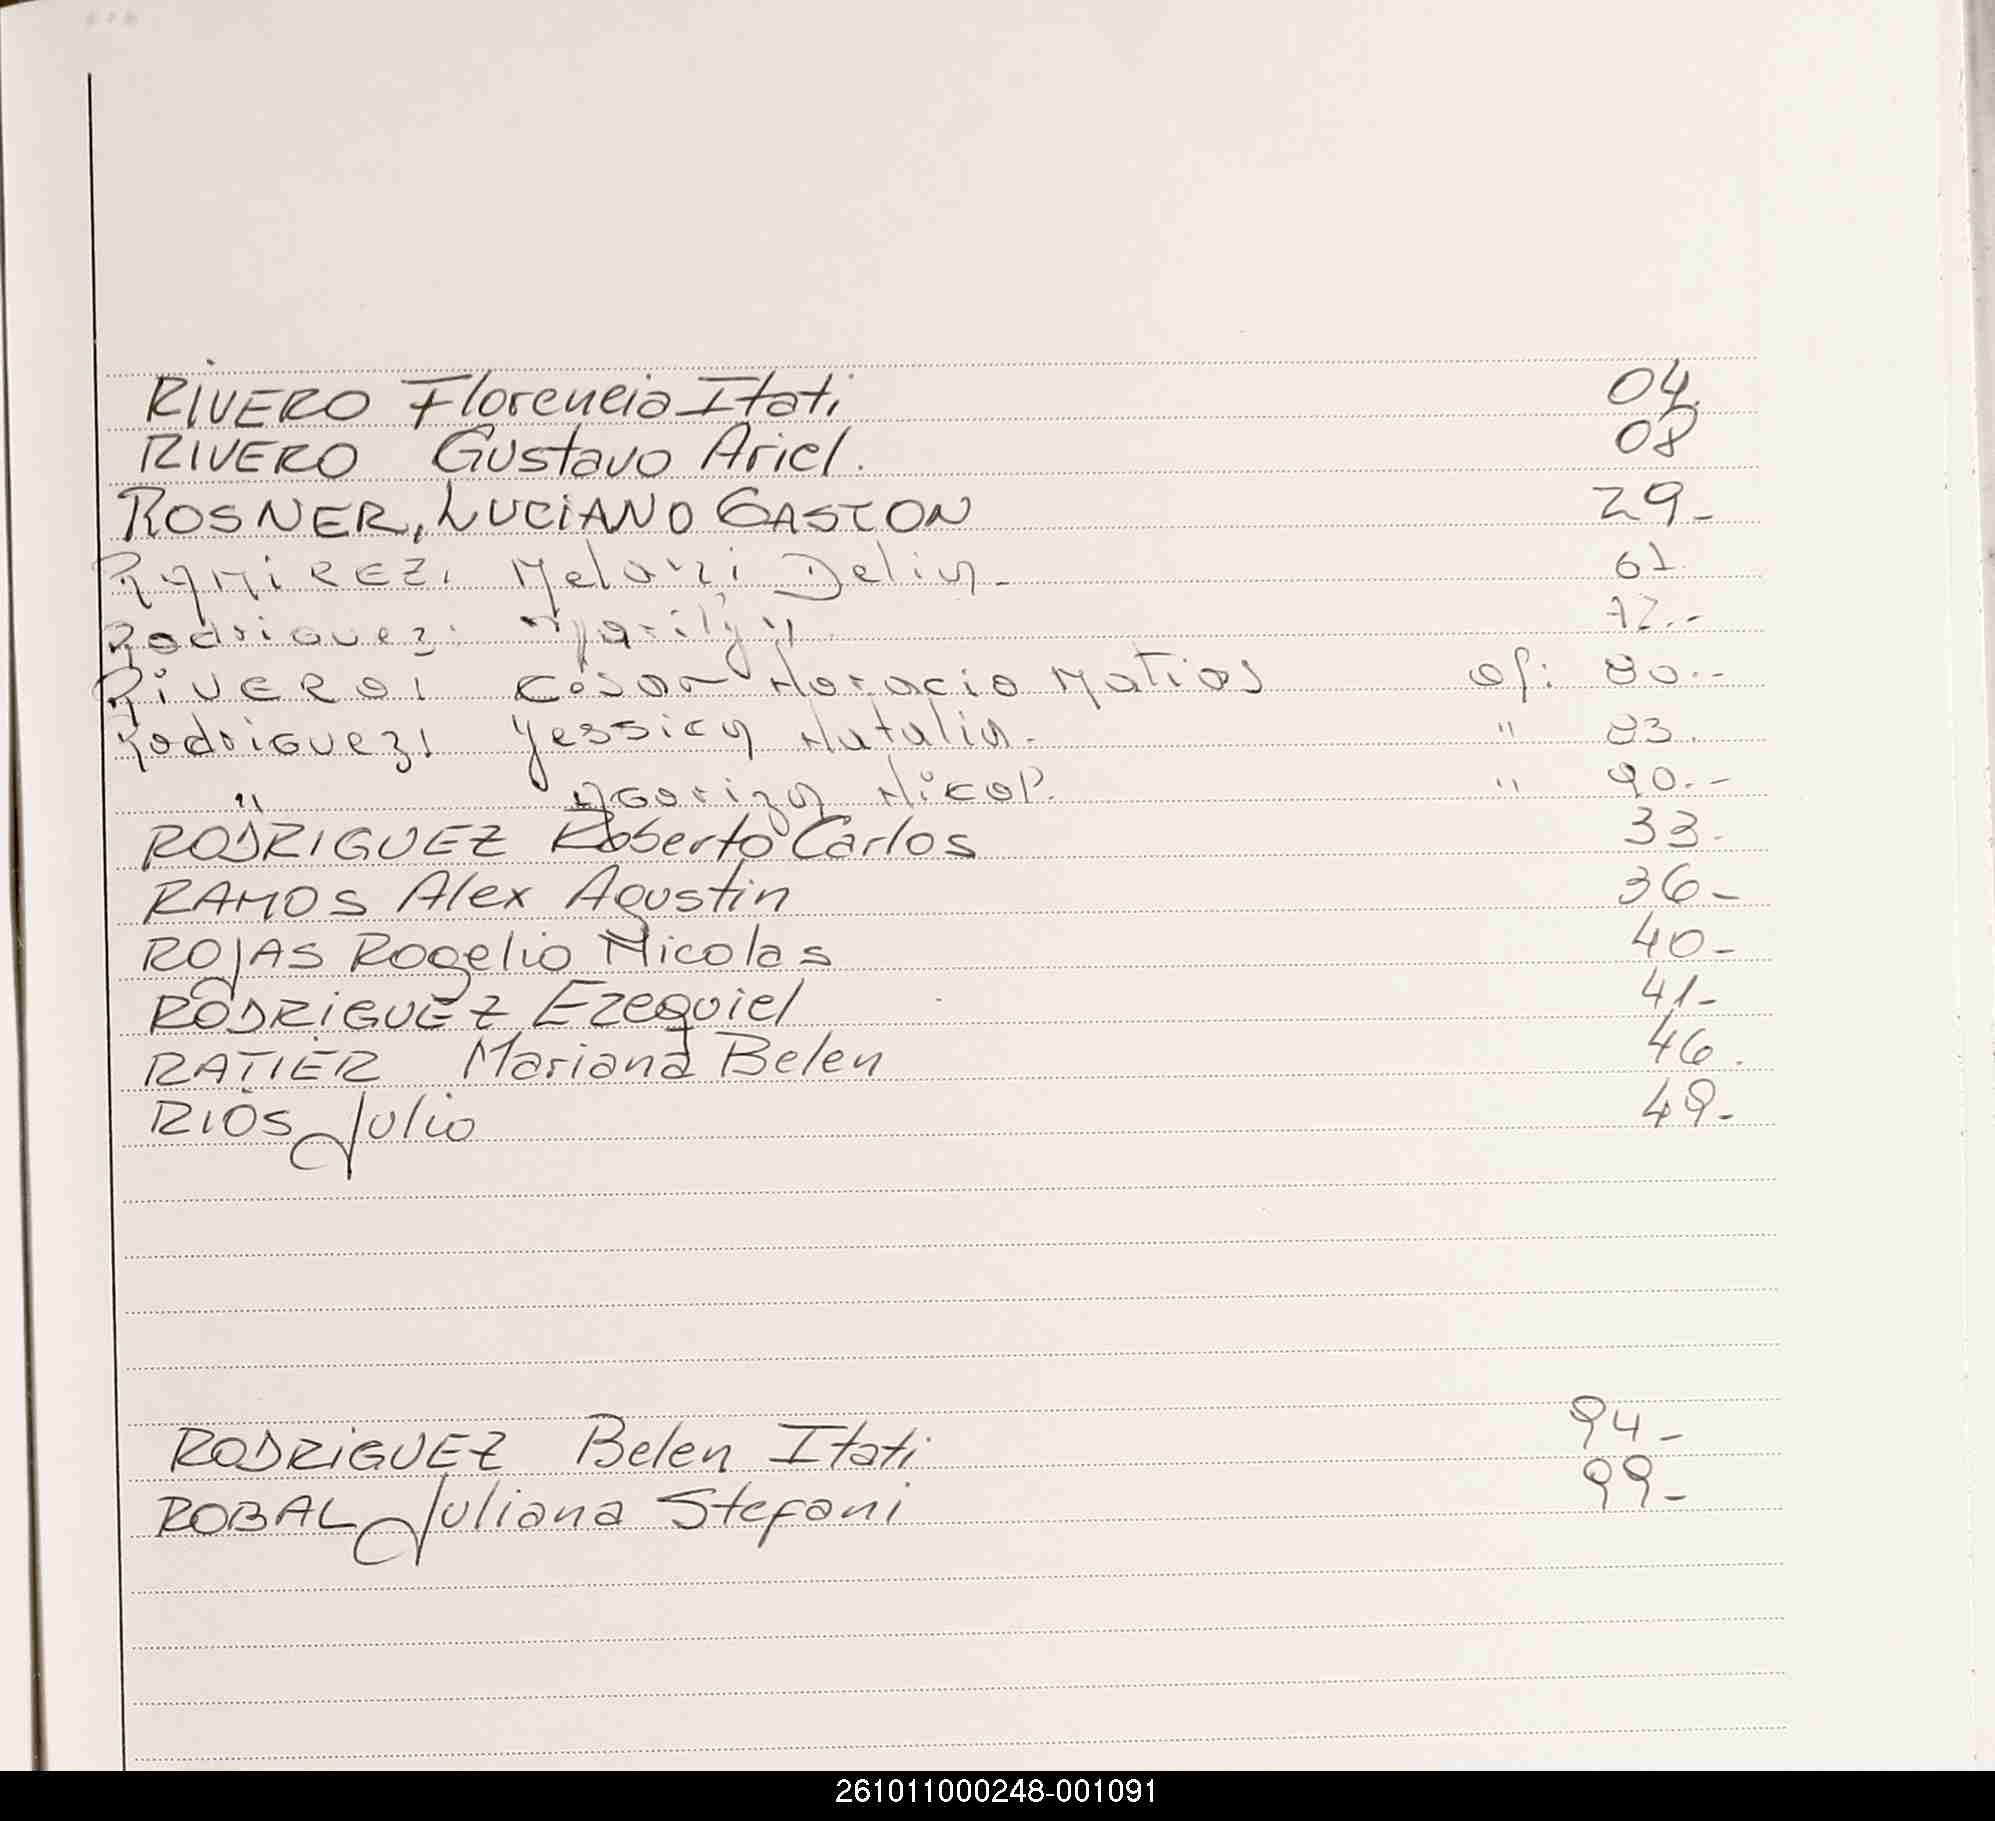 RIVERO Florencia Itati 04.
RIVERO Gustavo Ariel. 08
ROSNER, LUCIANO GASTON 29-
RAMIREZ, Melani Delia- 61
Rodriguez. Marilyn 72.-
RIVERO, César Horacio Matias of: 80.-
Rodriguez, Yessica Natalia- " 83.
" Nicol. " 90.-
RODRIGUEZ Roberto Carlos 33-
RAMOS Alex Agustin 36-
ROJAS Rogelio Nicolas 40-
RODRIGUEZ Ezequiel 41-
RATIER Mariana Belen 46.
RIOS Julio 49-
RODRIGUEZ Belen Itati 94-
ROBAL Juliana Stefani 99-
261011000248-001091